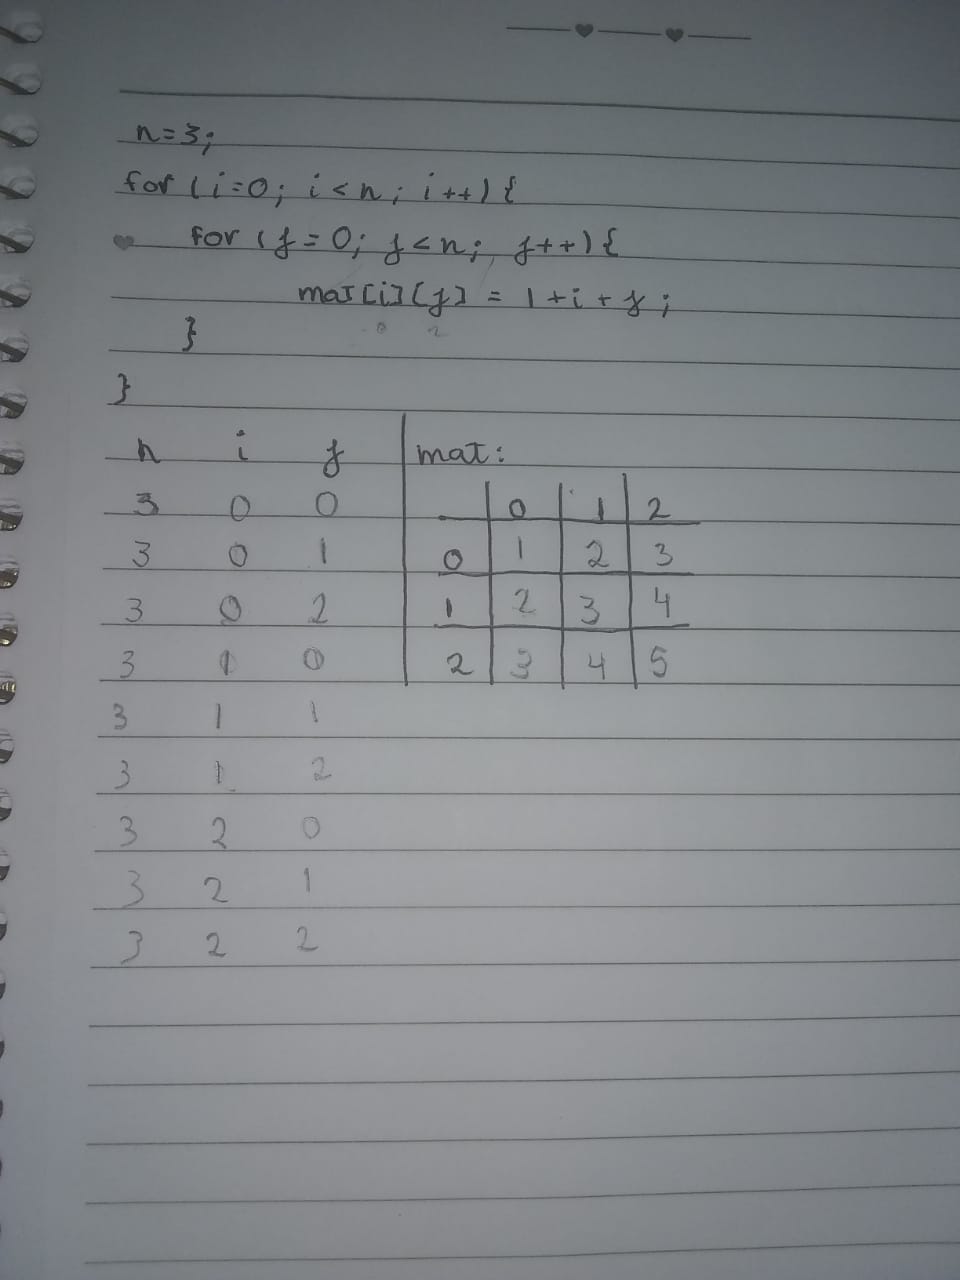 n=3;
for (i=0; i<n; i++){
for (j=0; j<n; j++){
mat[i][j] = 1+i+j;
0 2
}
}
n i j
3 0 0
3 0 1
3 0 2
3 1 0
3 1 1
3 1 2
3 2 0
3 2 1
3 2 2
mat:
0 1 2
0 1 2 3
1 2 3 4
2 3 4 5